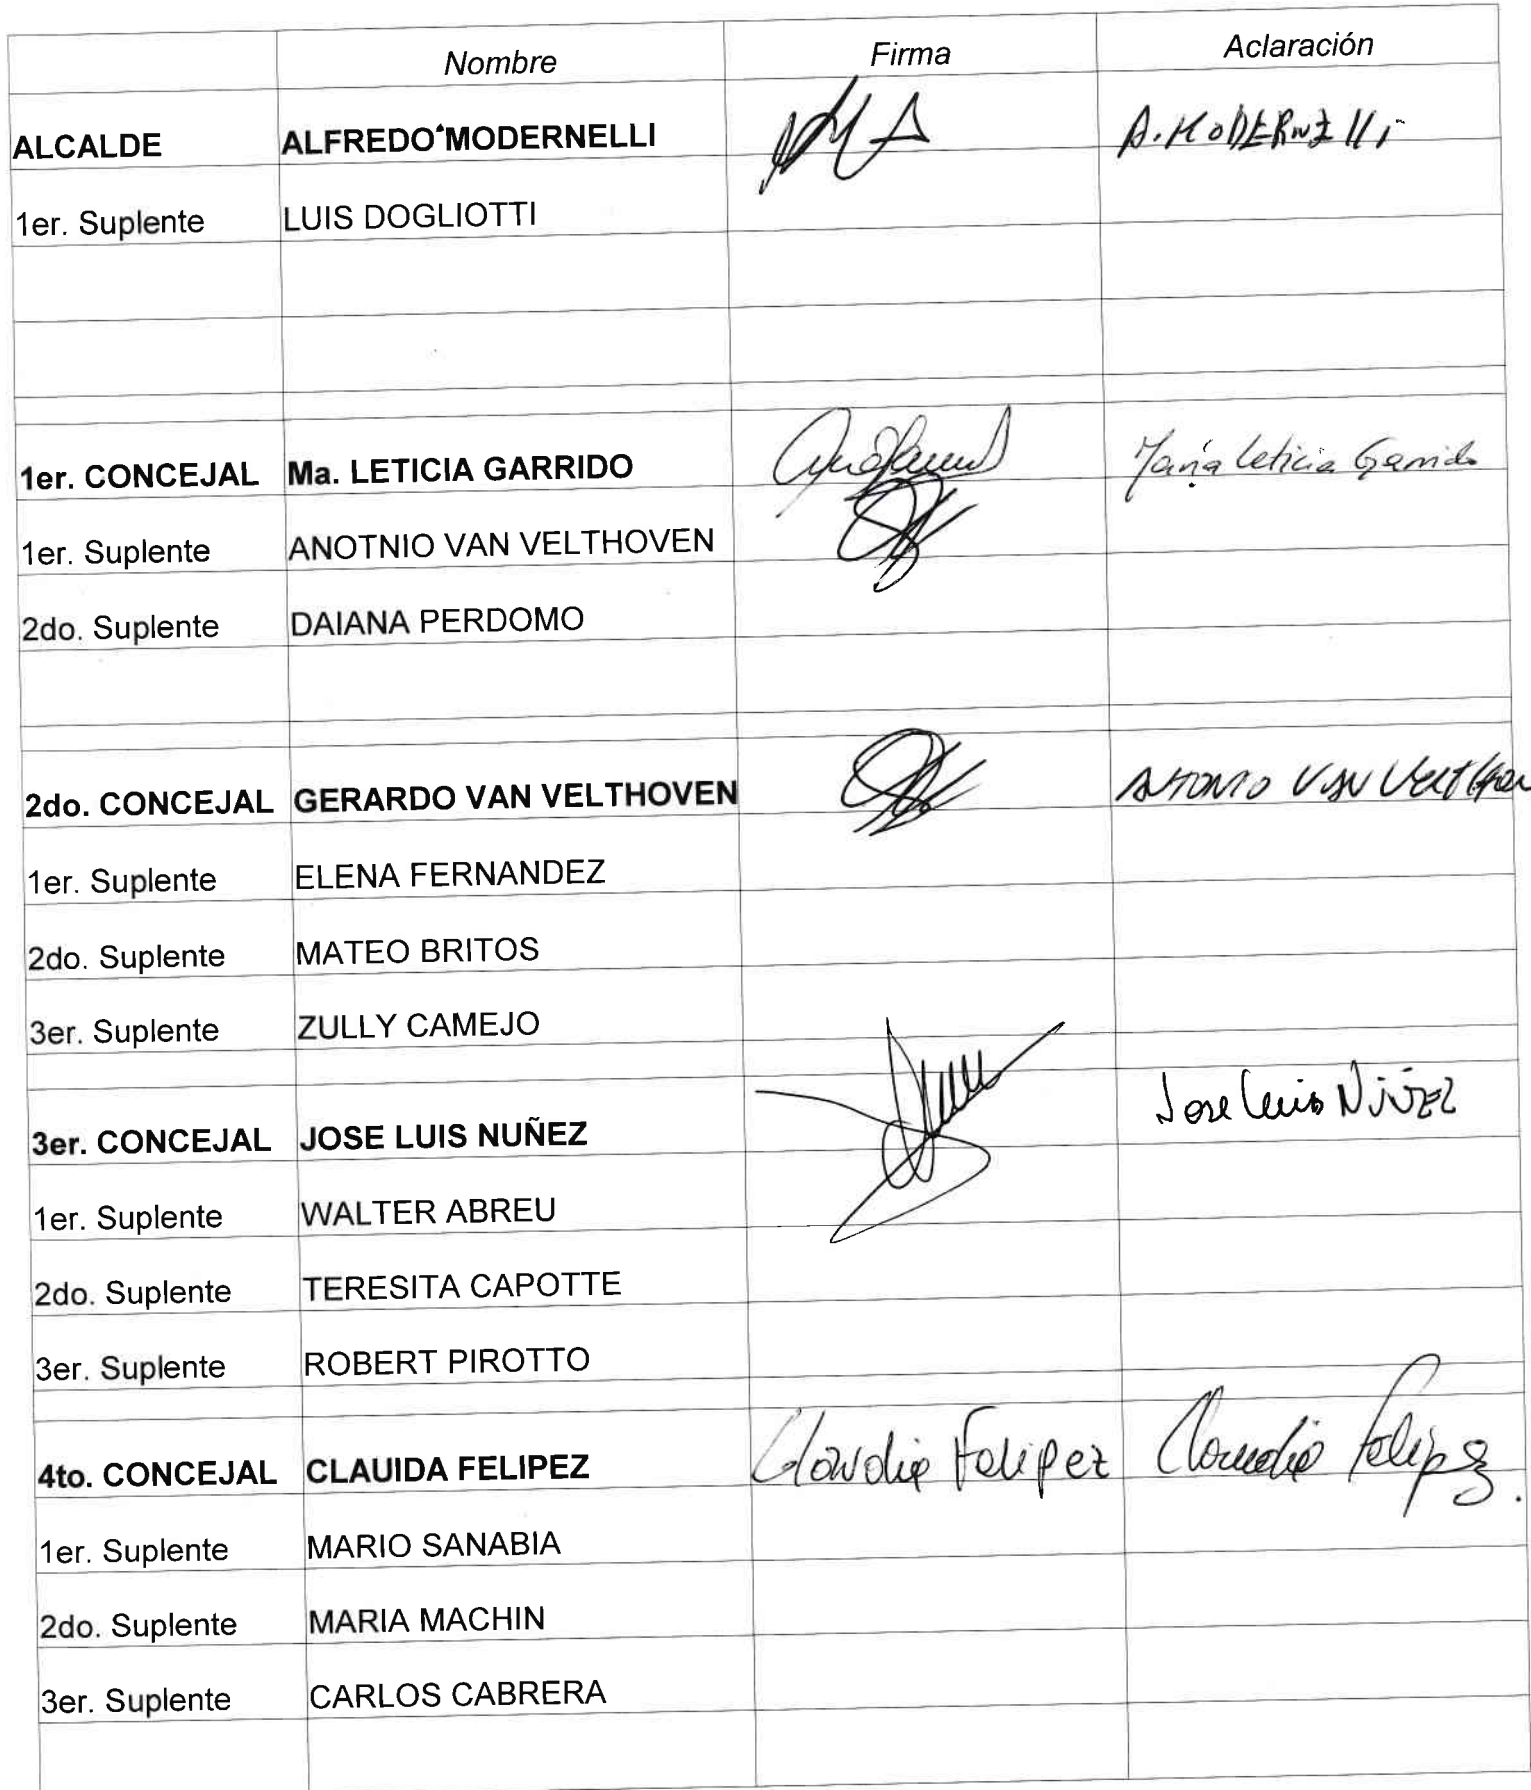 Nombre Firma Aclaración
ALCALDE ALFREDO MODERNELLI A. MODERNELLI
1er. Suplente LUIS DOGLIOTTI
1er. CONCEJAL Ma. LETICIA GARRIDO María Leticia Garrido
1er. Suplente ANOTNIO VAN VELTHOVEN
2do. Suplente DAIANA PERDOMO
2do. CONCEJAL GERARDO VAN VELTHOVEN ANTONIO VAN VELTHOVEN
1er. Suplente ELENA FERNANDEZ
2do. Suplente MATEO BRITOS
3er. Suplente ZULLY CAMEJO
3er. CONCEJAL JOSE LUIS NUÑEZ Jose Luis NÚÑEZ
1er. Suplente WALTER ABREU
2do. Suplente TERESITA CAPOTTE
3er. Suplente ROBERT PIROTTO
4to. CONCEJAL CLAUIDA FELIPEZ Claudia Felipez Claudia Felipez.
1er. Suplente MARIO SANABIA
2do. Suplente MARIA MACHIN
3er. Suplente CARLOS CABRERA